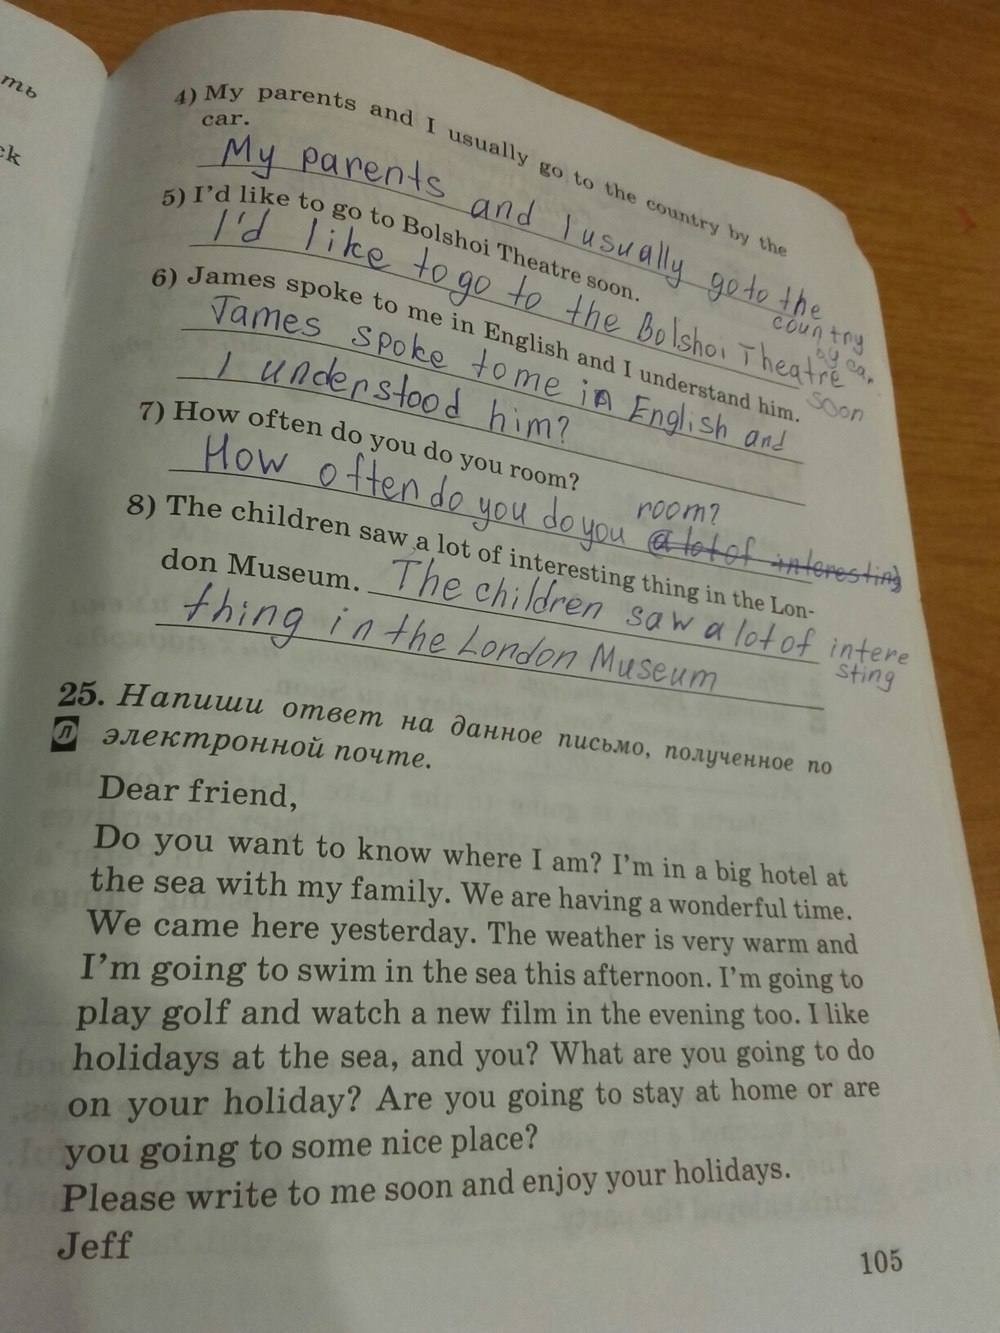 ть
ck
4) My parents and I usually go to the country by the
car.
My parents and I usually go to the
country
by car
5) I'd like to go to Bolshoi Theatre soon.
I'd like to go to the Bolshoi Theatre
soon
6) James spoke to me in English and I understand him.
James spoke to me in English and
I understood him?
7) How often do you do you room?
How often do you do you room?
a lot of interesting
8) The children saw a lot of interesting thing in the Lon-
don Museum. The children saw a lot of intere
sting
thing in the London Museum
25. Напиши ответ на данное письмо, полученное по
Л электронной почте.
Dear friend,
Do you want to know where I am? I'm in a big hotel at
the sea with my family. We are having a wonderful time.
We came here yesterday. The weather is very warm and
I'm going to swim in the sea this afternoon. I'm going to
play golf and watch a new film in the evening too. I like
holidays at the sea, and you? What are you going to do
on your holiday? Are you going to stay at home or are
you going to some nice place?
Please write to me soon and enjoy your holidays.
Jeff
105